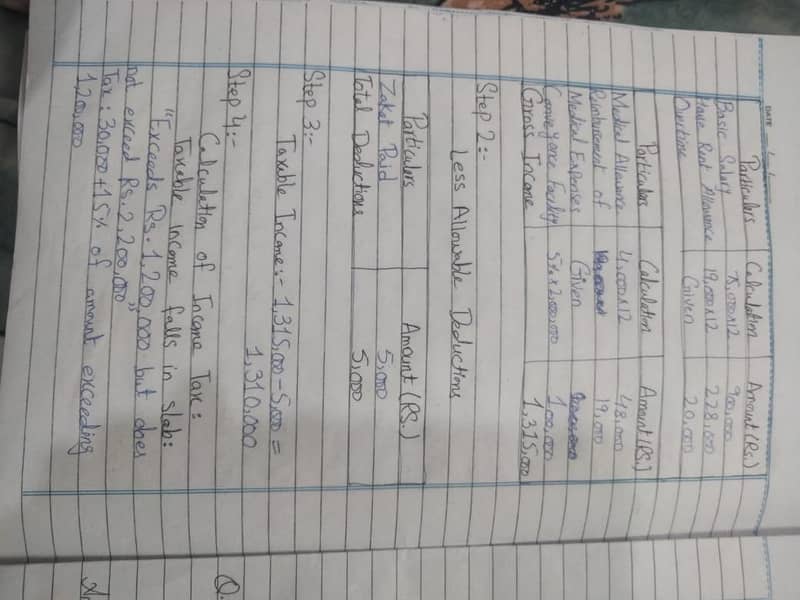 DATE / /
Particulars Calculation Amount (Rs.)
Basic Salary 75,000x12 900,000
House Rent Allowance 19,000x12 228,000
Overtime Given 20,000
Particulars Calculation Amount (RS.)
Medical Allowance 4,000x12 48,000
Reimbursement of 19,000
Medical Expenses Given
Conveyance Facility 5%x2,000,000 100,000
Gross Income 1,315,000
Step 2:-
Less Allowable Deductions
Particulars Amount (RS.)
Zakat Paid 5,000 5,000
Total Deductions 5,000
Step 3:-
Taxable Income:- 1,315,000-5,000 =
1,310,000
Step 4:-
Calculation of Income Tax:
Taxable Income falls in Slab:
"Exceeds Rs. 1,200,000 but does
not exceed Rs. 2,200,000"
Tax: 30,000+15% of amount exceeding
1,200,000
Q.